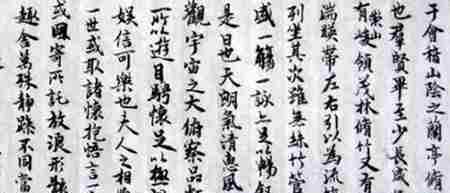 于會稽山陰之蘭亭脩
也羣賢畢至少長咸
有崇山峻領茂林脩竹又有
湍暎帶左右引以為流
列坐其次雖無絲竹管
盛一觴一詠亦足以暢叙
是日也天朗氣清惠風
觀宇宙之大俯察品類
所以遊目騁懷足以極視
娛信可樂也夫人之相與
一世或取諸懷抱悟言一
或因寄所託放浪形骸
趣舍萬殊靜躁不同當